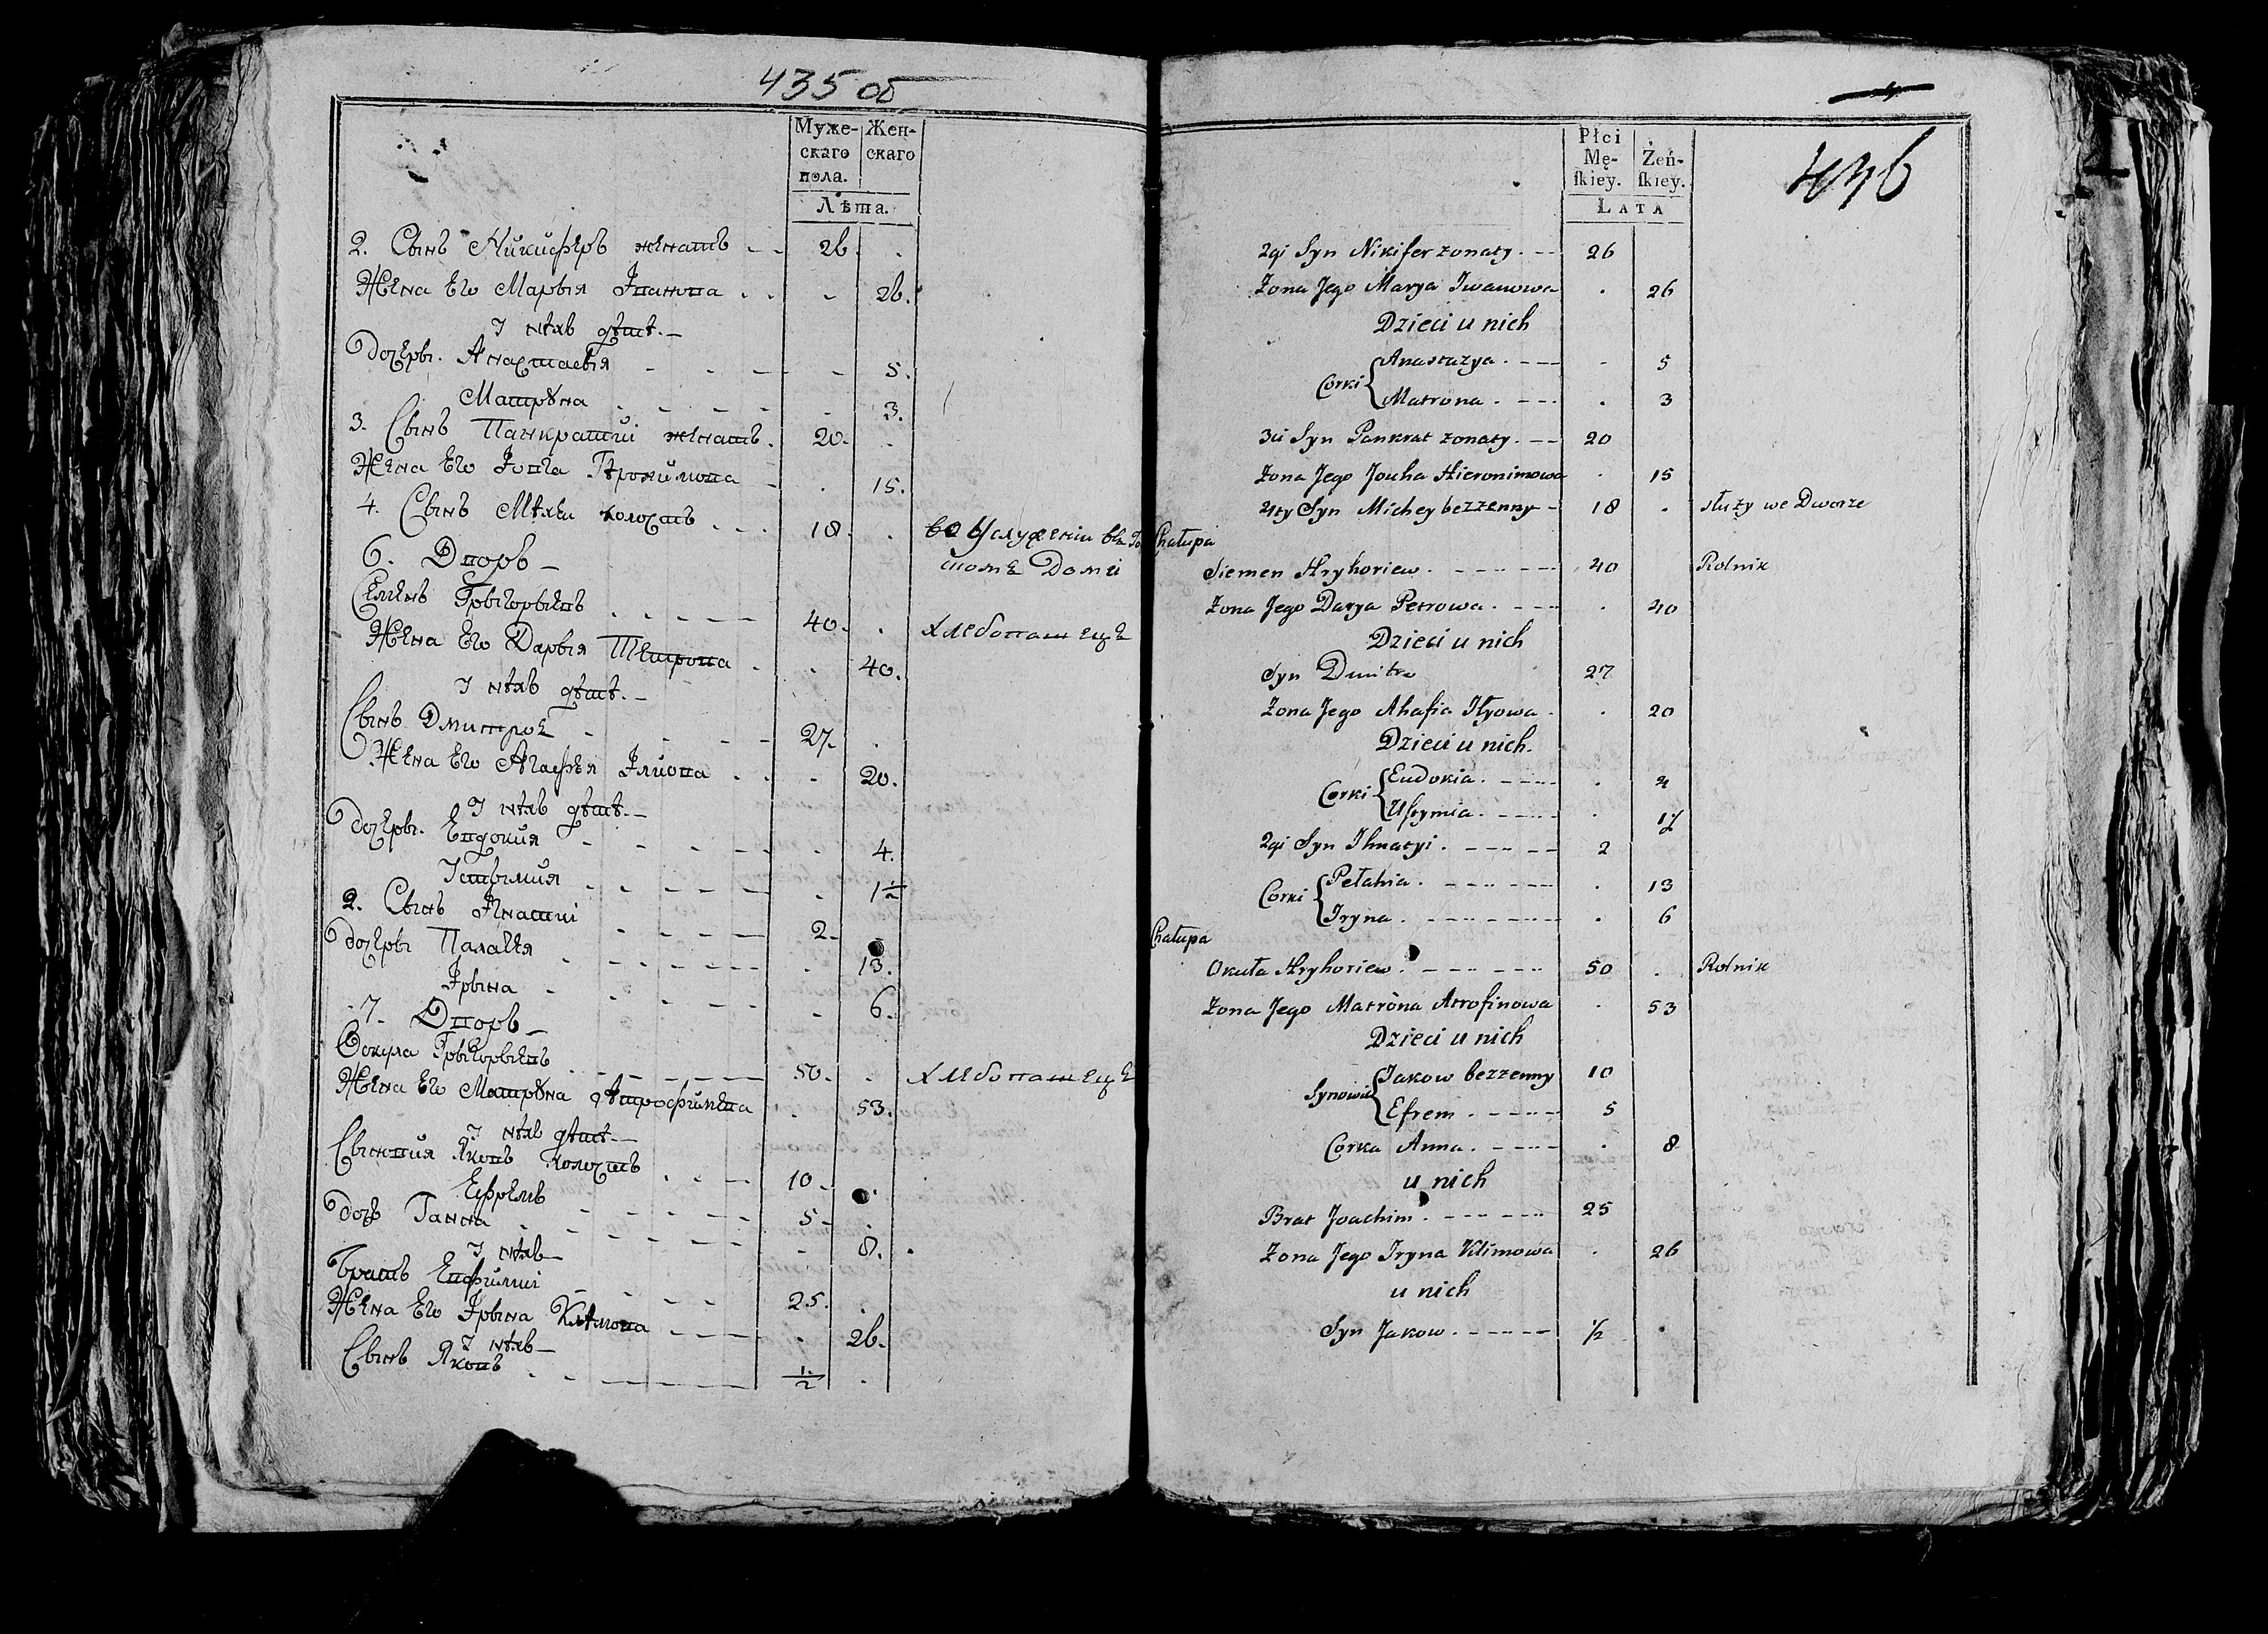 435 об
Муже-
скаго
пола.
Жен-
скаго
Лѣта.
2. Сынъ Никифѣръ женатъ 26
Жена Его Марья Іванова 26.
У нихъ дѣти.
Дочери. Анастасья 5.
Матрона 3.
3. Сынъ Панкратій женатъ. 20.
Жена Его 15.
4. Сынъ Михеи холостъ 18. во Услуженіи
Доми
6. Дворъ
Семенъ Григорьевъ 40. хлебопашецъ
Жена Его Дарья Петрова 40.
У нихъ дѣти.
Сынъ Дмитро 27.
Жена Его Агафья Ілиова 20.
У нихъ дѣти.
Дочери. Евдокия 4.
Устымия 1½
2. Сынъ Игнатіи 2
Дочери Палагея 13.
Ірына 6.
7. Дворъ
Григорьевъ 50. хлебопашецъ
Жена Его Матрона 53.
У нихъ дѣти.
Сыновия Яковъ холостъ 10
Ефремъ 5
Дочь Ганна 8.
У нихъ
Братъ 25.
Жена Его Ірына Климова 26.
У нихъ
Сынъ Яковъ ½
436
Płci
Mę-
ſkiey.
Żeń-
ſkiey.
LATA
2gi Syn Nikifer żonaty 26
Żona Jego Marya Iwanowa 26
Dzieci u nich
Corki Anastazya 5
Matrona 3
3ci Syn Pankrat żonaty 20
Żona Jego Jouha Hieronimowa 15
4ty Syn Michey bezzenny 18 służy we Dworze
Chałupa
Siemen Hryhoriew 40 Rolnik
Żona Jego Darya Petrowa 40
Dzieci u nich
Syn Dmitro 27
Żona Jego Ahafia Ilyowa 20
Dzieci u nich.
Corki Eudokia 4
Ustymia 1½
2gi Syn Ihnatyi 2
Corki Pełahia 13
Iryna 6
Chałupa
Okuła Hryhoriew 50 Rolnik
Żona Jego Matrona Atrofinowa 53
Dzieci u nich
Synowie Jakow bezzenny 10
Efrem 5
Corka Anna 8
u nich
Brat Joachim 25
Żona Jego Iryna Klimowa 26
u nich
Syn Jakow ½